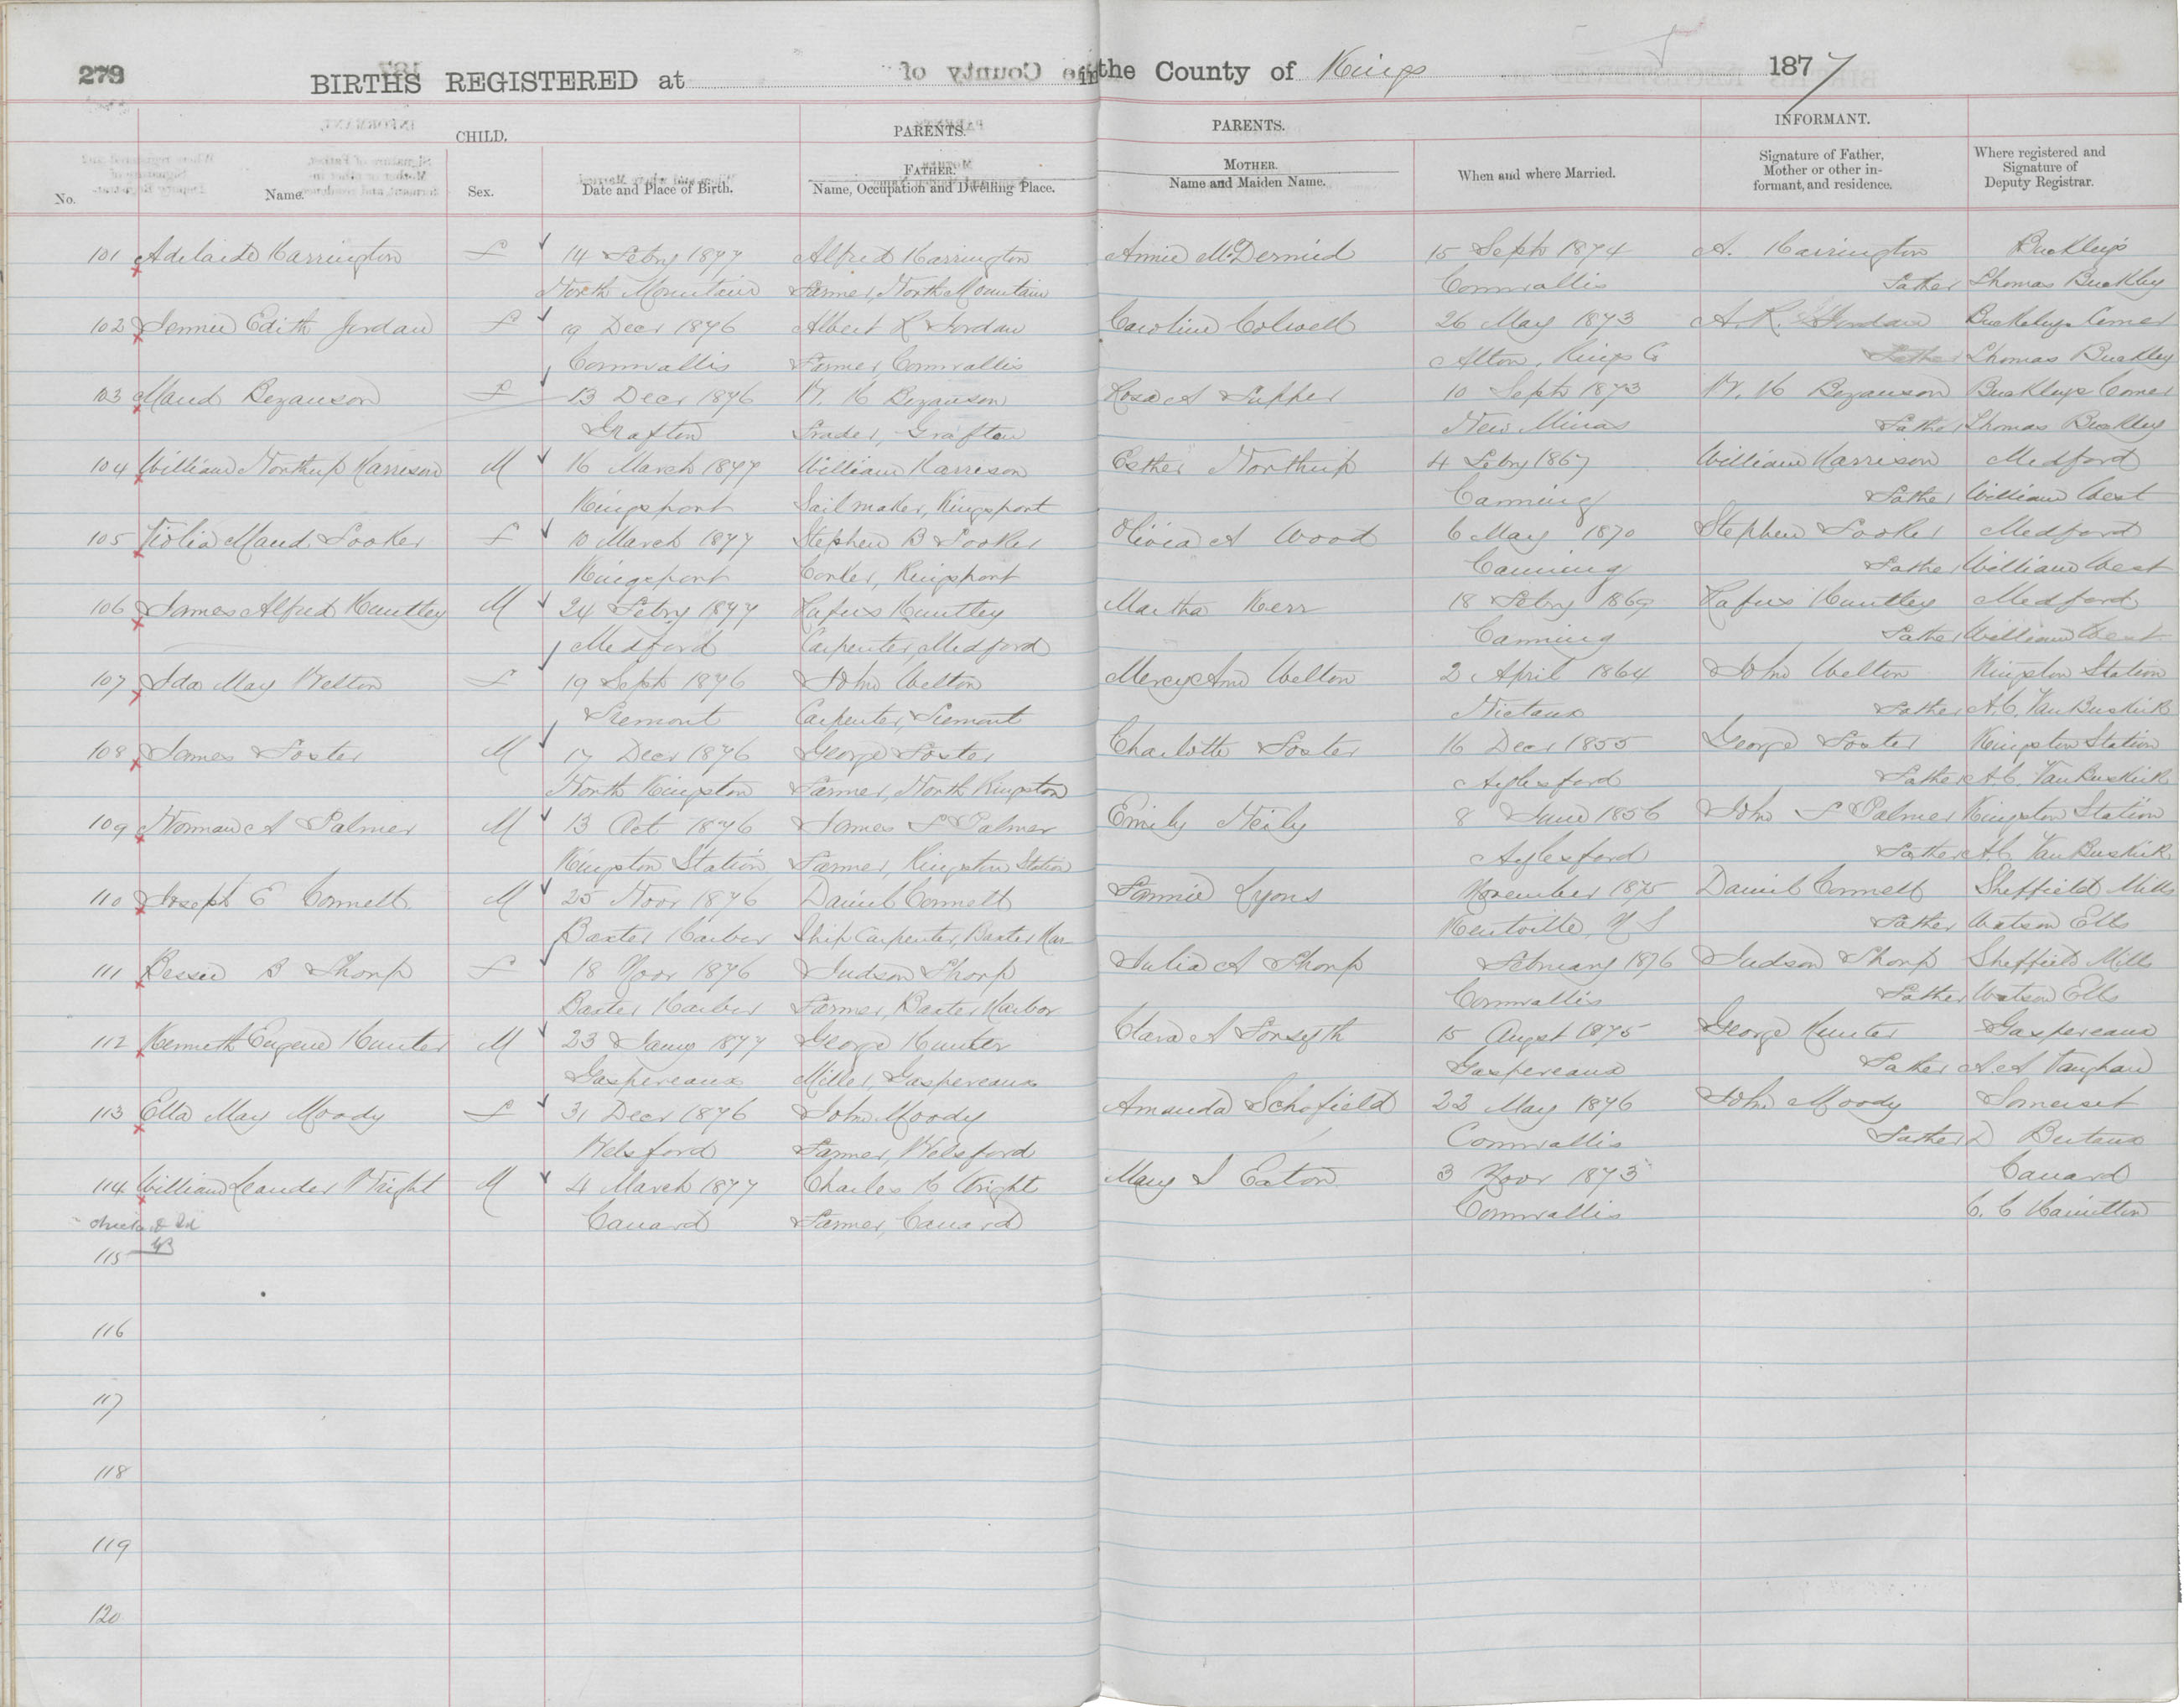 279 BIRTHS REGISTERED at in the County of Kings 1877
CHILD. PARENTS. PARENTS. INFORMANT.
No. Name. Sex. Date and Place of Birth. FATHER. Name, Occupation and Dwelling Place. MOTHER. Name and Maiden Name. When and where Married. Signature of Father, Mother or other informant, and residence. Where registered and Signature of Deputy Registrar.
101 Adelaide Harrington F 14 Febry 1877 Alfred Harrington Annie McDermid 15 Septr 1874 A. Harrington Buckleys
North Mountain Farmer, North Mountain Cornwallis Father Thomas Buckley
102 Jennie Edith Jordan F 19 Decr 1876 Albert R Jordan Caroline Colwell 26 May 1873 A. R. Jordan Buckleys Corner
Cornwallis Farmer Cornwallis Alton, Kings Co Father Thomas Buckley
103 Maud Bezanson F 13 Decr 1876 W. H Bezanson Rosa A Tupper 10 Septr 1873 W. H Bezanson Buckleys Corner
Grafton Trader, Grafton New Minas Father Thomas Buckley
104 William Northup Harrison M 16 March 1877 William Harrison Esther Northup 4 Febry 1867 William Harrison Medford
Kingsport Sail maker, Kingsport Canning Father William West
105 Violia Maud Tooker F 10 March 1877 Stephen B Tooker Olivia A Wood 6 May 1870 Stephen Tooker Medford
Kingsport Corker, Kingsport Canning Father William West
106 James Alfred Huntley M 24 Febry 1877 Rufus Huntley Martha Kerr 18 Febry 1869 Rufus Huntley Medford
Medford Carpenter, Medford Canning Father William West
107 Ida May Welton F 19 Septr 1876 John Welton Mercy Ann Welton 2 April 1864 John Welton Kingston Station
Tremont Carpenter, Tremont Nictaux Father A. C. VanBuskirk
108 James Foster M 17 Decr 1876 George Foster Charlotte Foster 16 Decr 1855 George Foster Kingston Station
North Kingston Farmer, North Kingston Aylesford Father A. C. VanBuskirk
109 Norman A Palmer M 13 Oct 1876 James F Palmer Emily Neily 8 June 1856 John F Palmer Kingston Station
Kingston Station Farmer, Kingston Station Aylesford Father A C. VanBuskirk
110 Joseph E Connell M 25 Novr 1876 Daniel Connell Fannie Lyons November 1875 Daniel Connell Sheffield Mills
Baxter Harbor Ship Carpenter, Baxter Har Kentville N S Father Watson Ells
111 Bessie B Thorp F 18 Novr 1876 Judson Thorp Julia A Thorp February 1876 Judson Thorp Sheffield Mills
Baxter Harbor Farmer, Baxter Harbor Cornwallis Father Watson Ells
112 Kenneth Eugene Hunter M 23 Jany 1877 George Hunter Clara A Forsyth 15 Augst 1875 George Hunter Gaspereaux
Gaspereaux Miller, Gaspereaux Gaspereaux Father A. A Vaughan
113 Ella May Moody F 31 Decr 1876 John Moody Amanda Schofield 22 May 1876 John Moody Somerset
Welsford Farmer, Welsford Cornwallis Father
114 William Leander Wright M 4 March 1877 Charles H Wright Mary I Eaton 3 Novr 1873 Canard
Canard Farmer, Canard Cornwallis C. C Hamilton
115
116
117
118
119
120